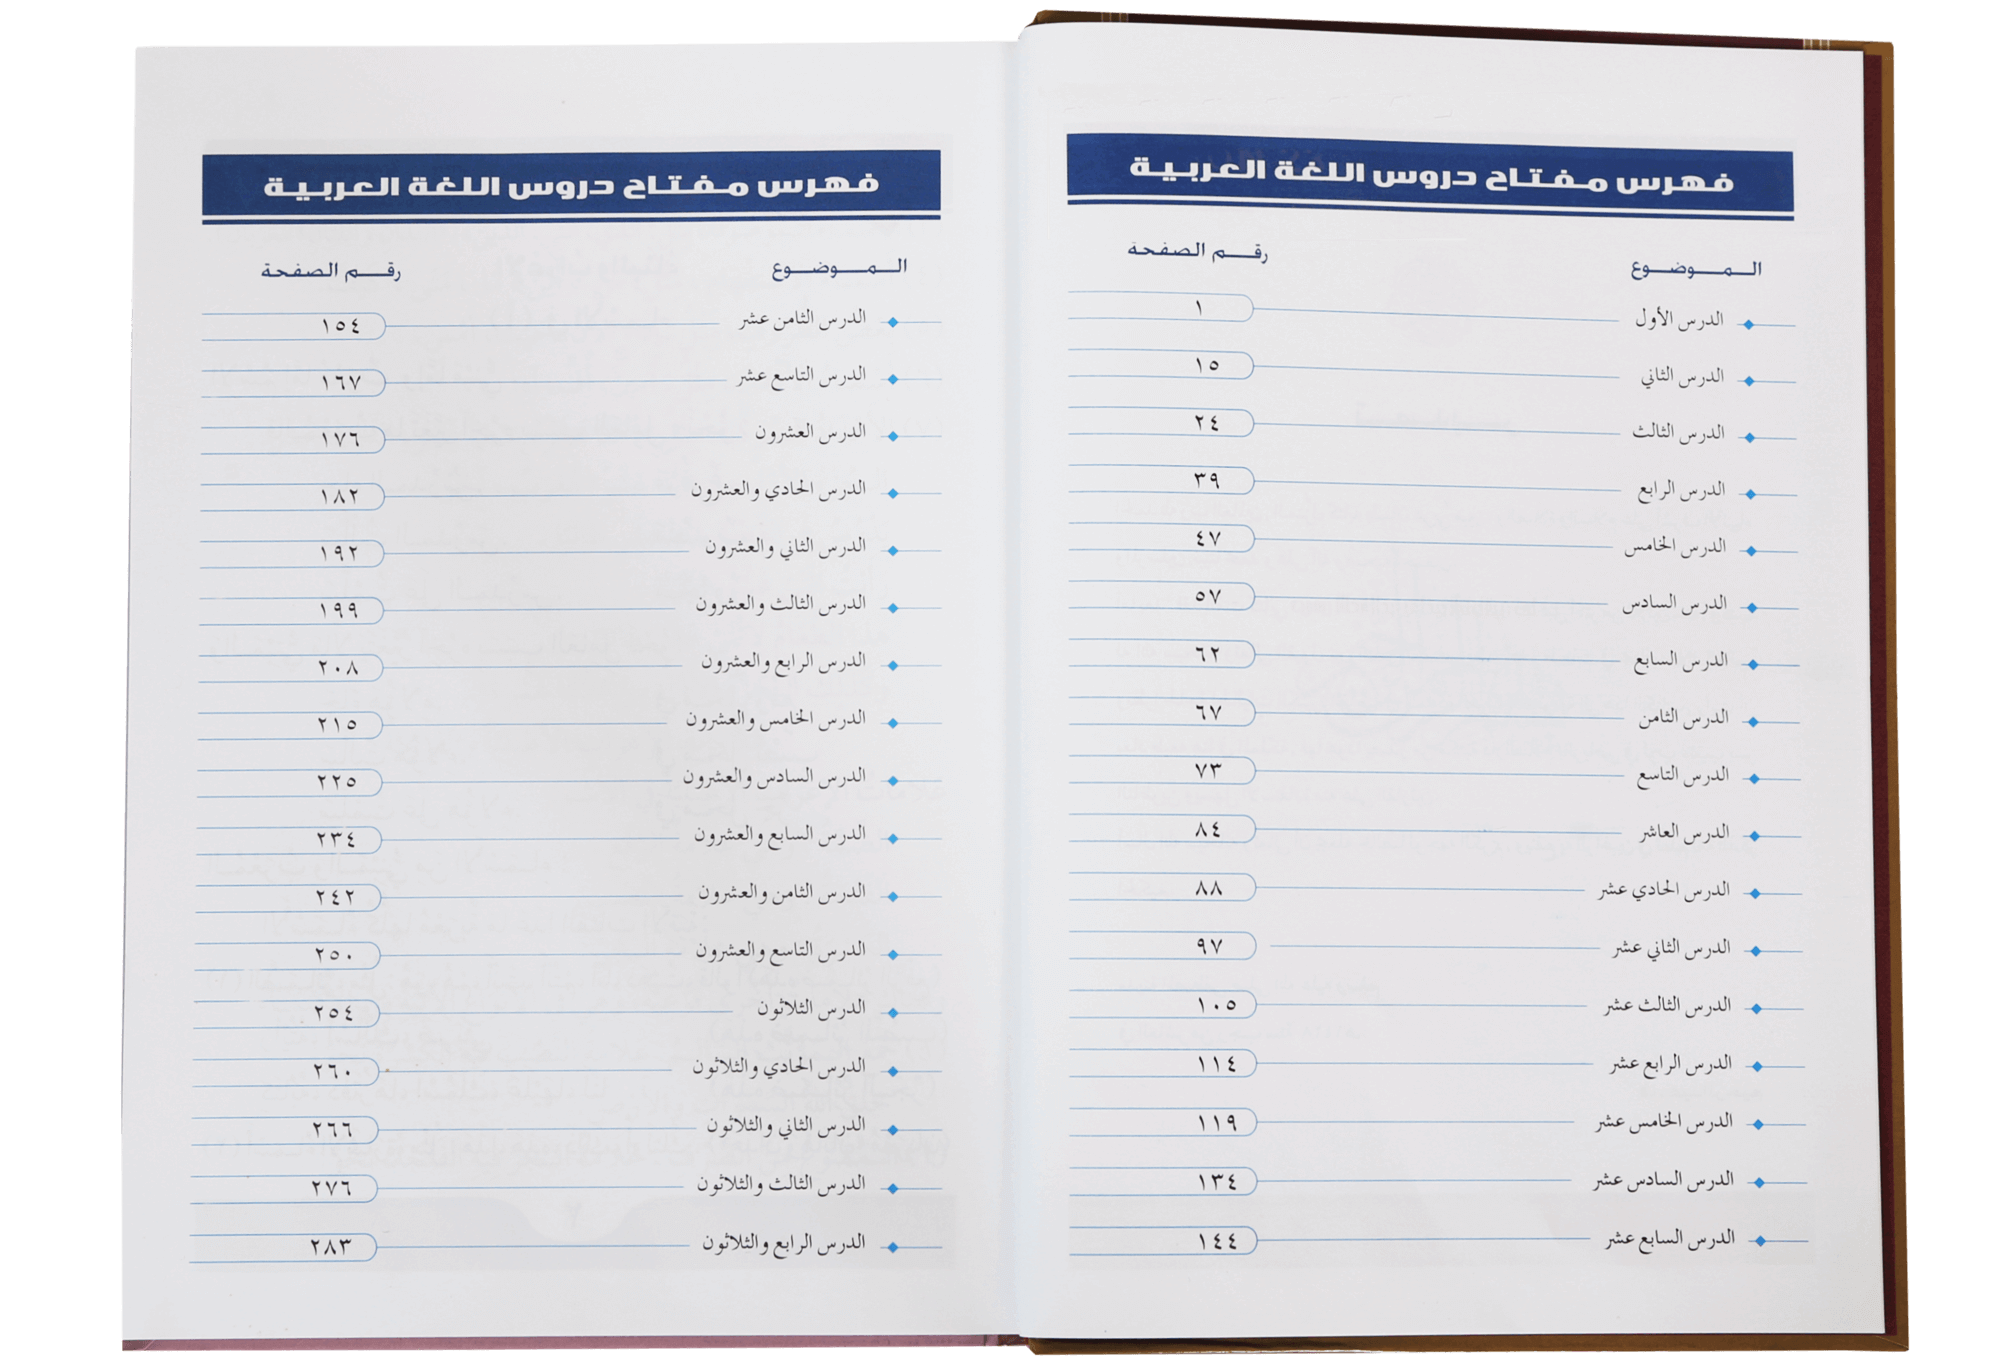 فهرس مفتاح دروس اللغة العربية
الموضوع رقم الصفحة
الدرس الأول ١
الدرس الثاني ١٥
الدرس الثالث ٢٤
الدرس الرابع ٣٩
الدرس الخامس ٤٧
الدرس السادس ٥٧
الدرس السابع ٦٢
الدرس الثامن ٦٧
الدرس التاسع ٧٣
الدرس العاشر ٨٤
الدرس الحادي عشر ٨٨
الدرس الثاني عشر ٩٧
الدرس الثالث عشر ١٠٥
الدرس الرابع عشر ١١٤
الدرس الخامس عشر ١١٩
الدرس السادس عشر ١٣٤
الدرس السابع عشر ١٤٤
فهرس مفتاح دروس اللغة العربية
الموضوع رقم الصفحة
الدرس الثامن عشر ١٥٤
الدرس التاسع عشر ١٦٧
الدرس العشرون ١٧٦
الدرس الحادي والعشرون ١٨٢
الدرس الثاني والعشرون ١٩٢
الدرس الثالث والعشرون ١٩٩
الدرس الرابع والعشرون ٢٠٨
الدرس الخامس والعشرون ٢١٥
الدرس السادس والعشرون ٢٢٥
الدرس السابع والعشرون ٢٣٤
الدرس الثامن والعشرون ٢٤٢
الدرس التاسع والعشرون ٢٥٠
الدرس الثلاثون ٢٥٤
الدرس الحادي والثلاثون ٢٦٠
الدرس الثاني والثلاثون ٢٦٦
الدرس الثالث والثلاثون ٢٧٦
الدرس الرابع والثلاثون ٢٨٣